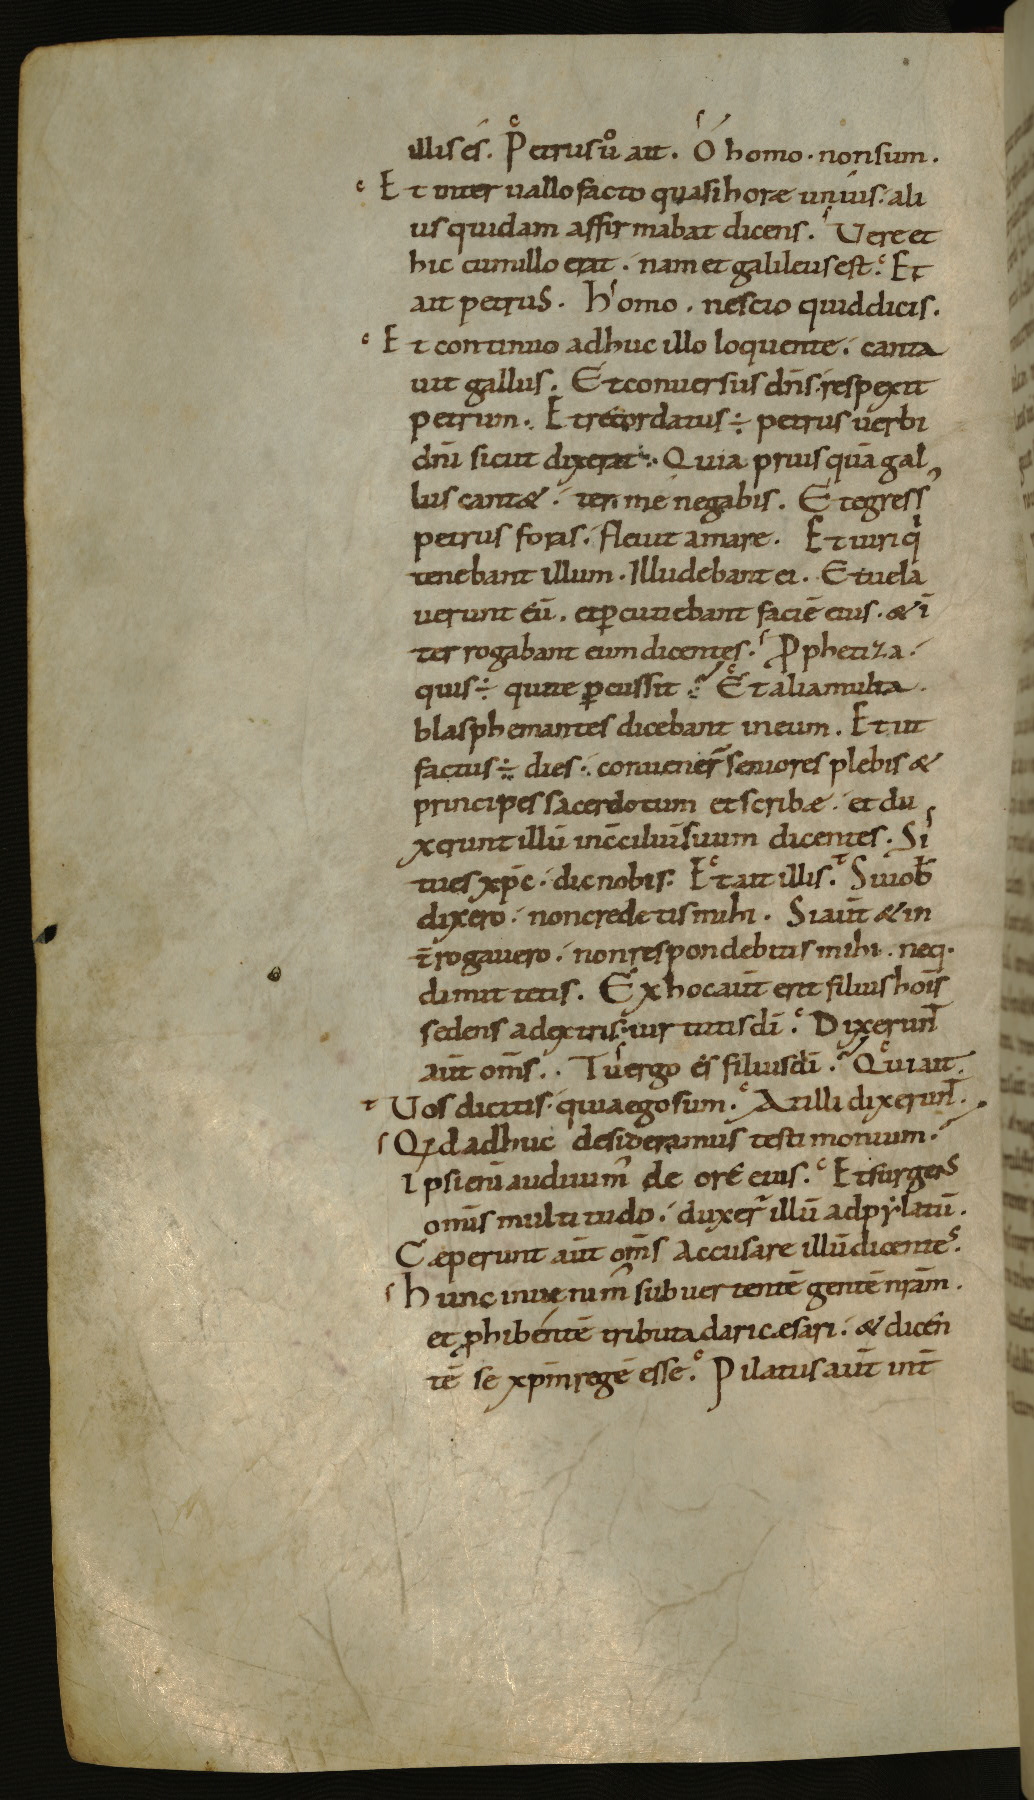 illis es. Petrus ů ait. O homo. non sum.
Et inter uallo facto quasi horæ unius. ali
us quidam affirmabat dicens. Vere et
hic cum illo erat. nam et galileus est. Et
ait petrus. homo. nescio quid dicis.
Et continuo adhuc illo loquente. canta
uit gallus. Et conuersus dn̄s respexit
petrum. Et recordatus ÷ petrus uerbi
dn̄i sicut dixerat. Quia prius quā gal
lus cant&. ter me negabis. Et egress᾿
petrus foras. fleuit amare. Et uiri q̇
tenebant illum. Illudebant ei. Et uela
uerunt eū. et ꝑcutiebant faciē eius. & ī
terrogabant eum dicentes. Ꝓphetiza.
quis ÷ qui te ꝑcussit. Et alia multa
blasphemantes dicebant in eum. Et ut
factus ÷ dies. conuener̄ seniores plebis &
principes sacerdotum et scribæ. et du
xerunt illū in c̄ciliū suum dicentes. Si
tu es xp̄c. dic nobis. Et ait illis. Si uob̄
dixero. non credetis mihi. Si aūt & in
t̄rogauero. non respondebitis mihi. neq·
dimittetis. Ex hoc aūt erit filius hoīs
sedens a dextris uirtutis dī. Dixerunt̄
aūt om̄s. Tu ergo es filius dī. Qui ait.
Vos dicitis. quia ego sum. At illi dixerunt̄.
Qd adhuc desideramus testimonium.
Ipsi enī audiuim᾿ de ore eius. Et surgens
omīs multitudo. duxer̄ illū ad pylatū.
Cæperunt aūt om̄s accusare illū dicentes.
hunc inuenim᾿ subuertentē gentē nr̄am.
et ꝓhibentē tributa dari cæsari. & dicen
tē se xp̄m regē esse. Pilatus aūt int̄